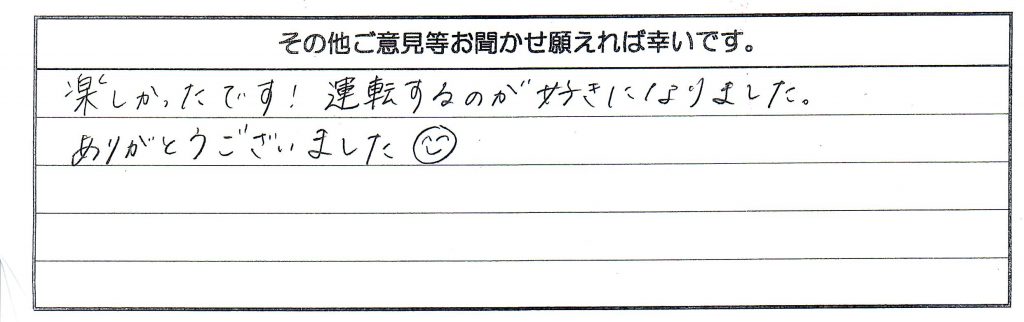 その他ご意見等お聞かせ願えれば幸いです。
楽しかったです！運転するのが好きになりました。
ありがとうございました😊